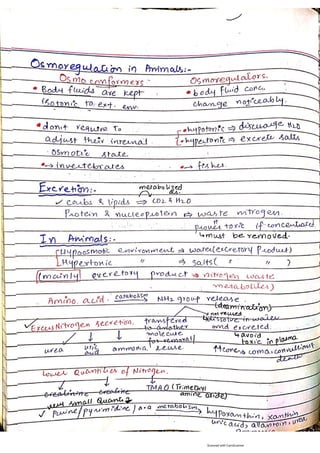 Osmoregulation in Animals:-
Osmo conformers Osmoregulators.
• Body fluids are kept isotonic to ext. env.
• body fluid conc. change noticeably.
• don't require to adjust their internal osmotic state.
• hypotonic ⇒ discharge H2O
• hypertonic ⇒ excrete salts
→ invertebrates
→ fishes.
Excretion:-
✓ carbs & lipids metabolized as ⇒ CO2 & H2O
Protein & nucleoprotein ⇒ waste nitrogen.
proves toxic if concentrated
↳ must be removed.
In Animals:-
Hypoosmotic environment → water (excretory product)
Hypertonic " → salts ( " )
(mainly) excretory product → nitrogen waste metabolites)
Amino acid catabolise NH2 group release
(deamination)
Nitrogen excretion.
transferred to another molecule for removal/ reuse
dissolve in water and excreted.
↳ avoid toxic in plasma
urea uric acid ammonia
coma, death
Lower Quantities of Nitrogen.
creatinine creatine TMAO (Trimethyl amine oxide)
small Quantity
✓ Purine/pyrimidine/a.a metabolism → hypoxanthin, xanthin
uric acid, allantoin, urea
Scanned with CamScanner